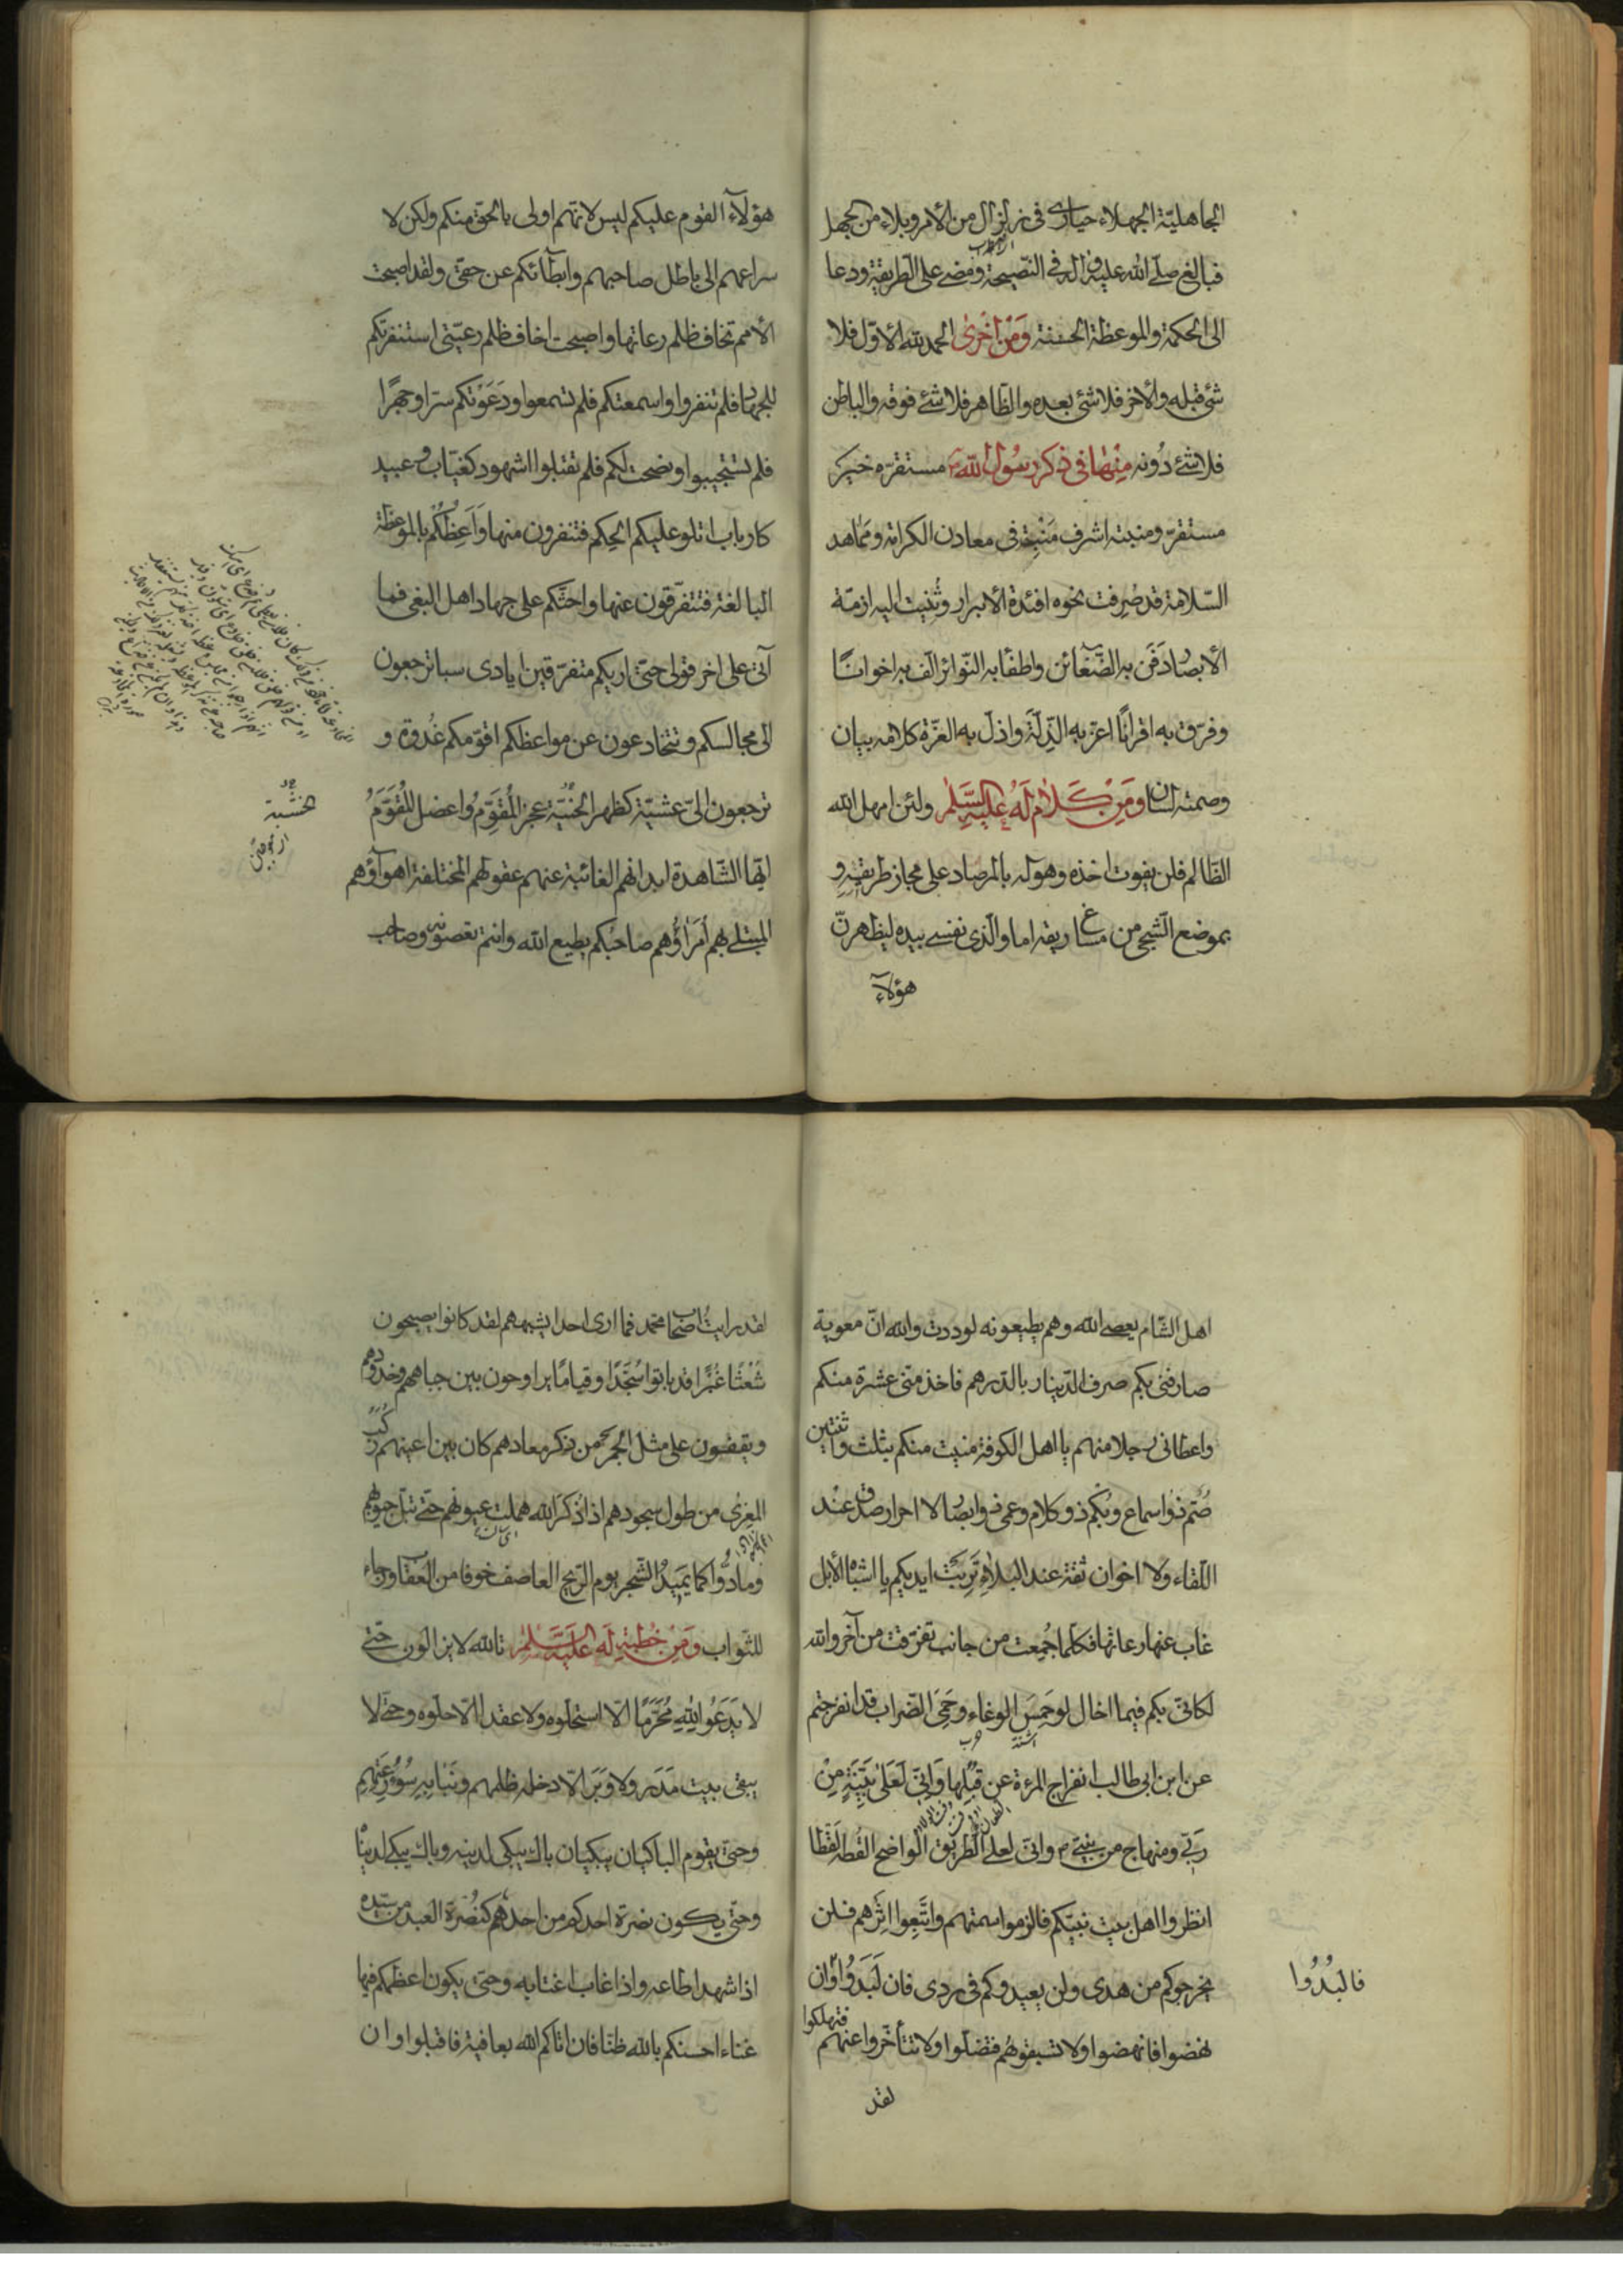 الجاهليّة الجهلاء حيارى فى زلزال من الأمر وبلاء من الجهل
فبالغ صلّى الله عليه وآله فى النّصيحة ومضى على الطريقة ودعا
الى الحكمة والموعظة الحسنة وَمِنْ اُخْرىٰ الحمد لله الأوّل فلا
شئ قبله والأخر فلا شئ بعده والظّاهر فلا شئ فوقه والباطن
فلا شئ دُونه مِنْهٰا فى ذكر رسُول اللّه مستقرّه خير
مستقرّ ومنبته اشرف مَنْبِت فى معادن الكرامة ومَمٰاهد
السّلامة قد صُرِفت نحوه افئدة الأبرار وثُنِيت اليه ازمّة
الأبصٰار دَفَن به الضّغائن واطفأ به النّوائر الّف به اخوانًا
وفرّق به اقرانًا اعزّ به الذِّلّة واذلّ به العزّة كلامه بيان
وصمته لسان وَمِنْ كَلاٰم لَهُ عليه السّلام ولئن امهل الله
الظّالم فلن يفوت اخذه وهو له بالمرصاد على مجاز طريقه و
بموضع الشّجى من مساغ ريقه اما والّذى نفسى بيده ليظهرنّ
هؤلآء
هؤلآء القوم عليكم ليس لانّهم اولى بالحقّ منكم ولكن لا
سراعهم الى باطل صاحبهم وابطآئكم عن حقّى ولقد اصبحت
الأمم تخاف ظلم رعاتها واصبحت اخاف ظلم رعيّتى استنفرتكم
للجهاد فلم تنفروا واسمعتكم فلم تسمعوا ودَعَوْتكم سرّا وجهرًا
فلم تستجيبوا ونصحت لكم فلم تقبلوا اشهود كغيّاب وعبيد
كارباب اتلو عليكم الحِكم فتنفرون منها وَاَعِظُكُم بالموعظة
البالغة فتتفرّقون عنها واحثّكم على جهاد اهل البغى فما
آتى على اخر قولى حتّى اريكم متفرّقين ايادى سبا ترجعون
الى مجالسكم وتتخادعون عن مواعظكم اقوّمكم غُدوة و
ترجعون الىّ عشيّة كظهر الحَنِيّة عجز المُقَوِّمُ واعضل المُقَوَّمُ
ايّها الشّاهدة ابدانهم الغائبة عنهم عقولهم المختلفة اهوآؤهم
المبتلى بهم اُمَرٰاؤُهم صاحبُكم يطيع الله وانتم تعصونه وصاحب
اهل الشّام يعصى الله وهم يطيعونه لوددت والله انّ معوية
صارفنى بكم صرف الدّينار بالدّرهم فاخذ منّى عشرة منكم
واعطانى رجلا منهم يا اهل الكوفة منيت منكم بثلث واثنتين
صُمّ ذوا اسماع وبُكم ذو وكلام وعمى ذوا ابصٰار لا احرار صدق عنْد
اللّقاء ولا اخوان ثقة عند البلاء تَرِبَتْ ايديكم يا اشباه الأبل
غاب عنها رعاتها فكلّما جُمِعت من جانب تفرّقت من آخر والله
لكانّى بكم فيما اخال لو حَمِسَ الوغاء وحَمِىَ الضّراب قد انفرجتم
عن ابن ابى طالب انفراج المرءة عن قبُلِها وَاِنّى لَعَلىٰ بَيِّنَةٍ مِنْ
رَبّى ومنهاج من نبيّى وانّى لعلى الطّريق الواضح القُطه لَقْطا
انظروا اهل بيت نبيّكم فالزموا سمتهم واتَّبِعوا اثرهم فلن
يخرجوكم من هدى ولن يعيدوكم فى ردى فان لَبَدُوا وان
فالبُدُوا
نهضوا فانهضوا ولا تسبقوهُم فتضلّوا ولا تتأخّروا عنهم فتهلكوا
لقد
لقد رايت اصحاب محمّد فما ارى احدا يشبههم لقد كانوا يصبحون
شُعْثًا غُبْرًا قد باتوا سُجّدًا وقيامًا يراوحون بين جباههم وخدودهم
ويقفون على مثل الجمر من ذكر معادهم كان بين اعينهم رُكَب
المِعزٰى من طول سجودهم اذا ذُكرَ الله هملت عيونهم حتّى تبلّ جيوبهم
ومادُوا كما يَمِيدُ الشّجر يوم الرّيح العاصف خوفا من العقاب ورجاء
للثّواب وَمِنْ خُطبةٍ لَهُ عَلَيْهِ السَّلٰمُ تالله لا يزالون حتّى
لا يَدَعُوا لِلّٰهِ مُحَرَّمًا الّا استحلّوه ولا عقدا الّا حلّوه وحتّى لا
يبقى بيت مَدَر ولا وَبَر الّا دخله ظلمهم ونَبٰا بِهِ سُوءُ رِعَتِهِم
وحتّى يقوم الباكيان يبكيان باك يبكى لدينه وباك يبكى لدنيٰا
وحتّى يكون نصرة احدكم من احدهم كنُصْرة العبد من سيّده
اذا شهد اطاعه واذا غاب اغتابه وحتّى يكون اعظمكم فيها
غناء احسنكم بالله ظنّا فان اتاكم الله بعافية فاقبلوا وان